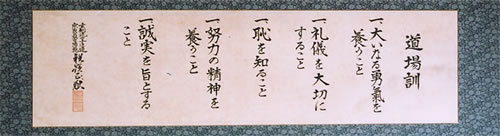 道場訓
一、大いなる勇氣を
養うこと
一、礼儀を大切に
すること
一、恥を知ること
一、努力の精神を
養うこと
一、誠実を旨とする
こと